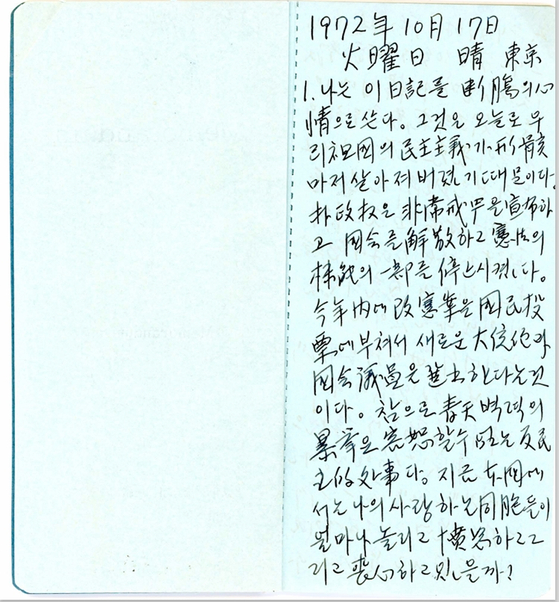 1972年 10月 17日
火曜日 晴 東京
1. 나는 이 日記를 断腸의 心
情으로 쓴다。그것은 오늘로 우
리 祖國의 民主主義가 形骸
마저 살아져 버렸기 때문이다.
朴政权은 非常戒严을 宣布하
고 国会를 解散하고 憲法의
機能의 一部를 停止시켰다。
今年內에 改憲案을 国民投
票에 부쳐서 새로운 大统领과
国会議員을 選出한다는 것
이다。참으로 青天벽력의
暴挙요 容恕할 수 없는 反民
主的 处事다. 지금 本国에
서는 나의 사랑하는 同胞들이
얼마나 놀리고 憤怒하고 그
리고 喪心하고 있을까?